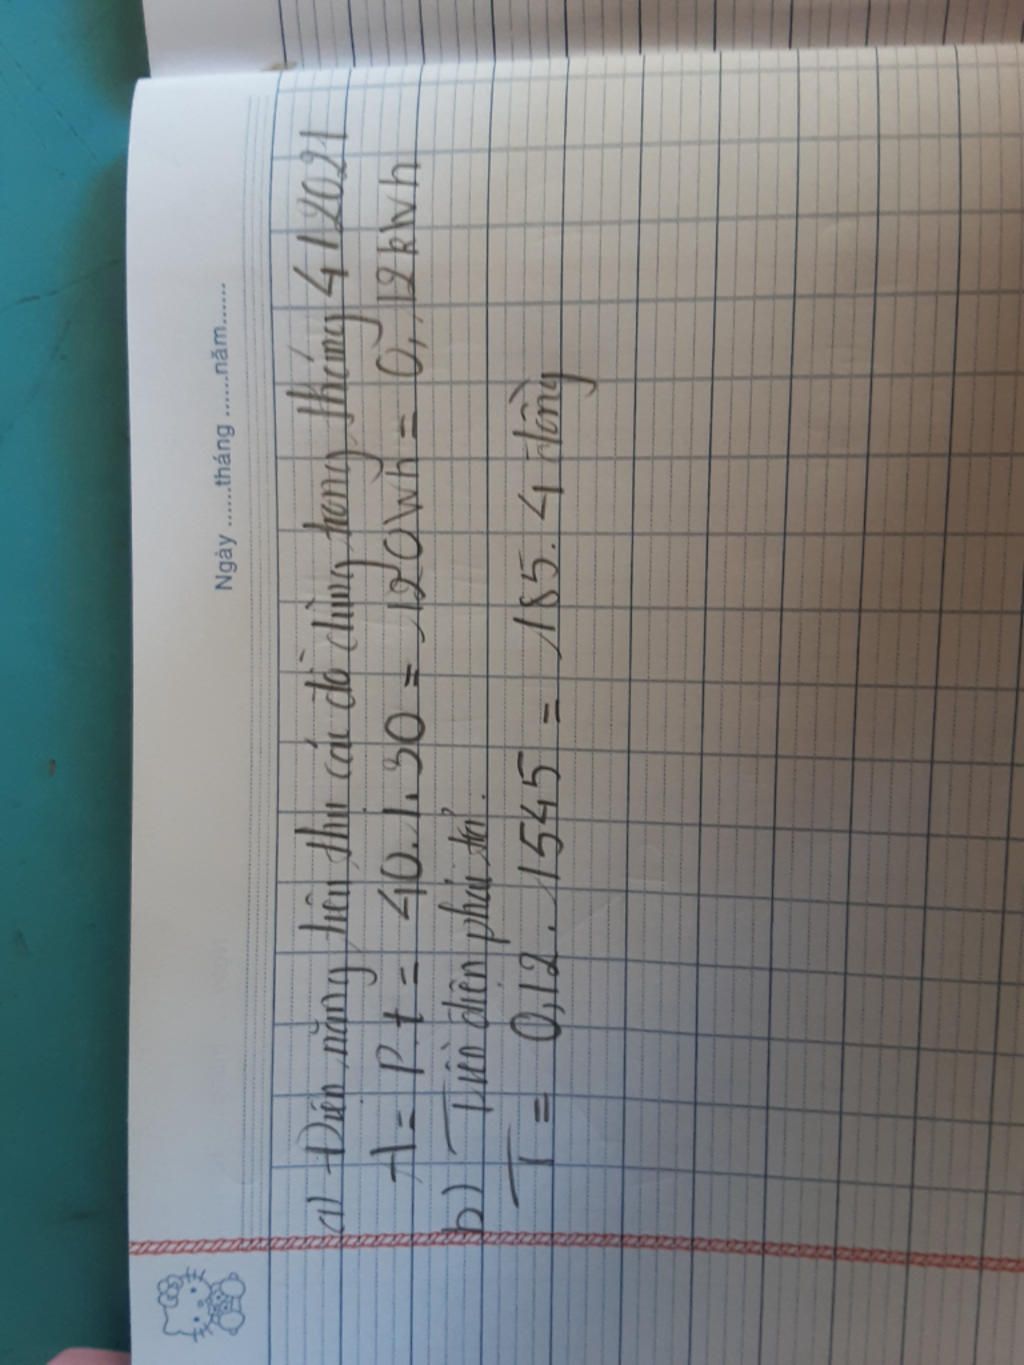 Ngày ......tháng ......năm......
a) Điện năng tiêu thụ các đồ dùng trong tháng 4/2021
A = P.t = 40.1.30 = 120Wh = 0,12kWh
b) Tiền điện phải trả.
T = 0,12. 1545 = 185.4 đồng